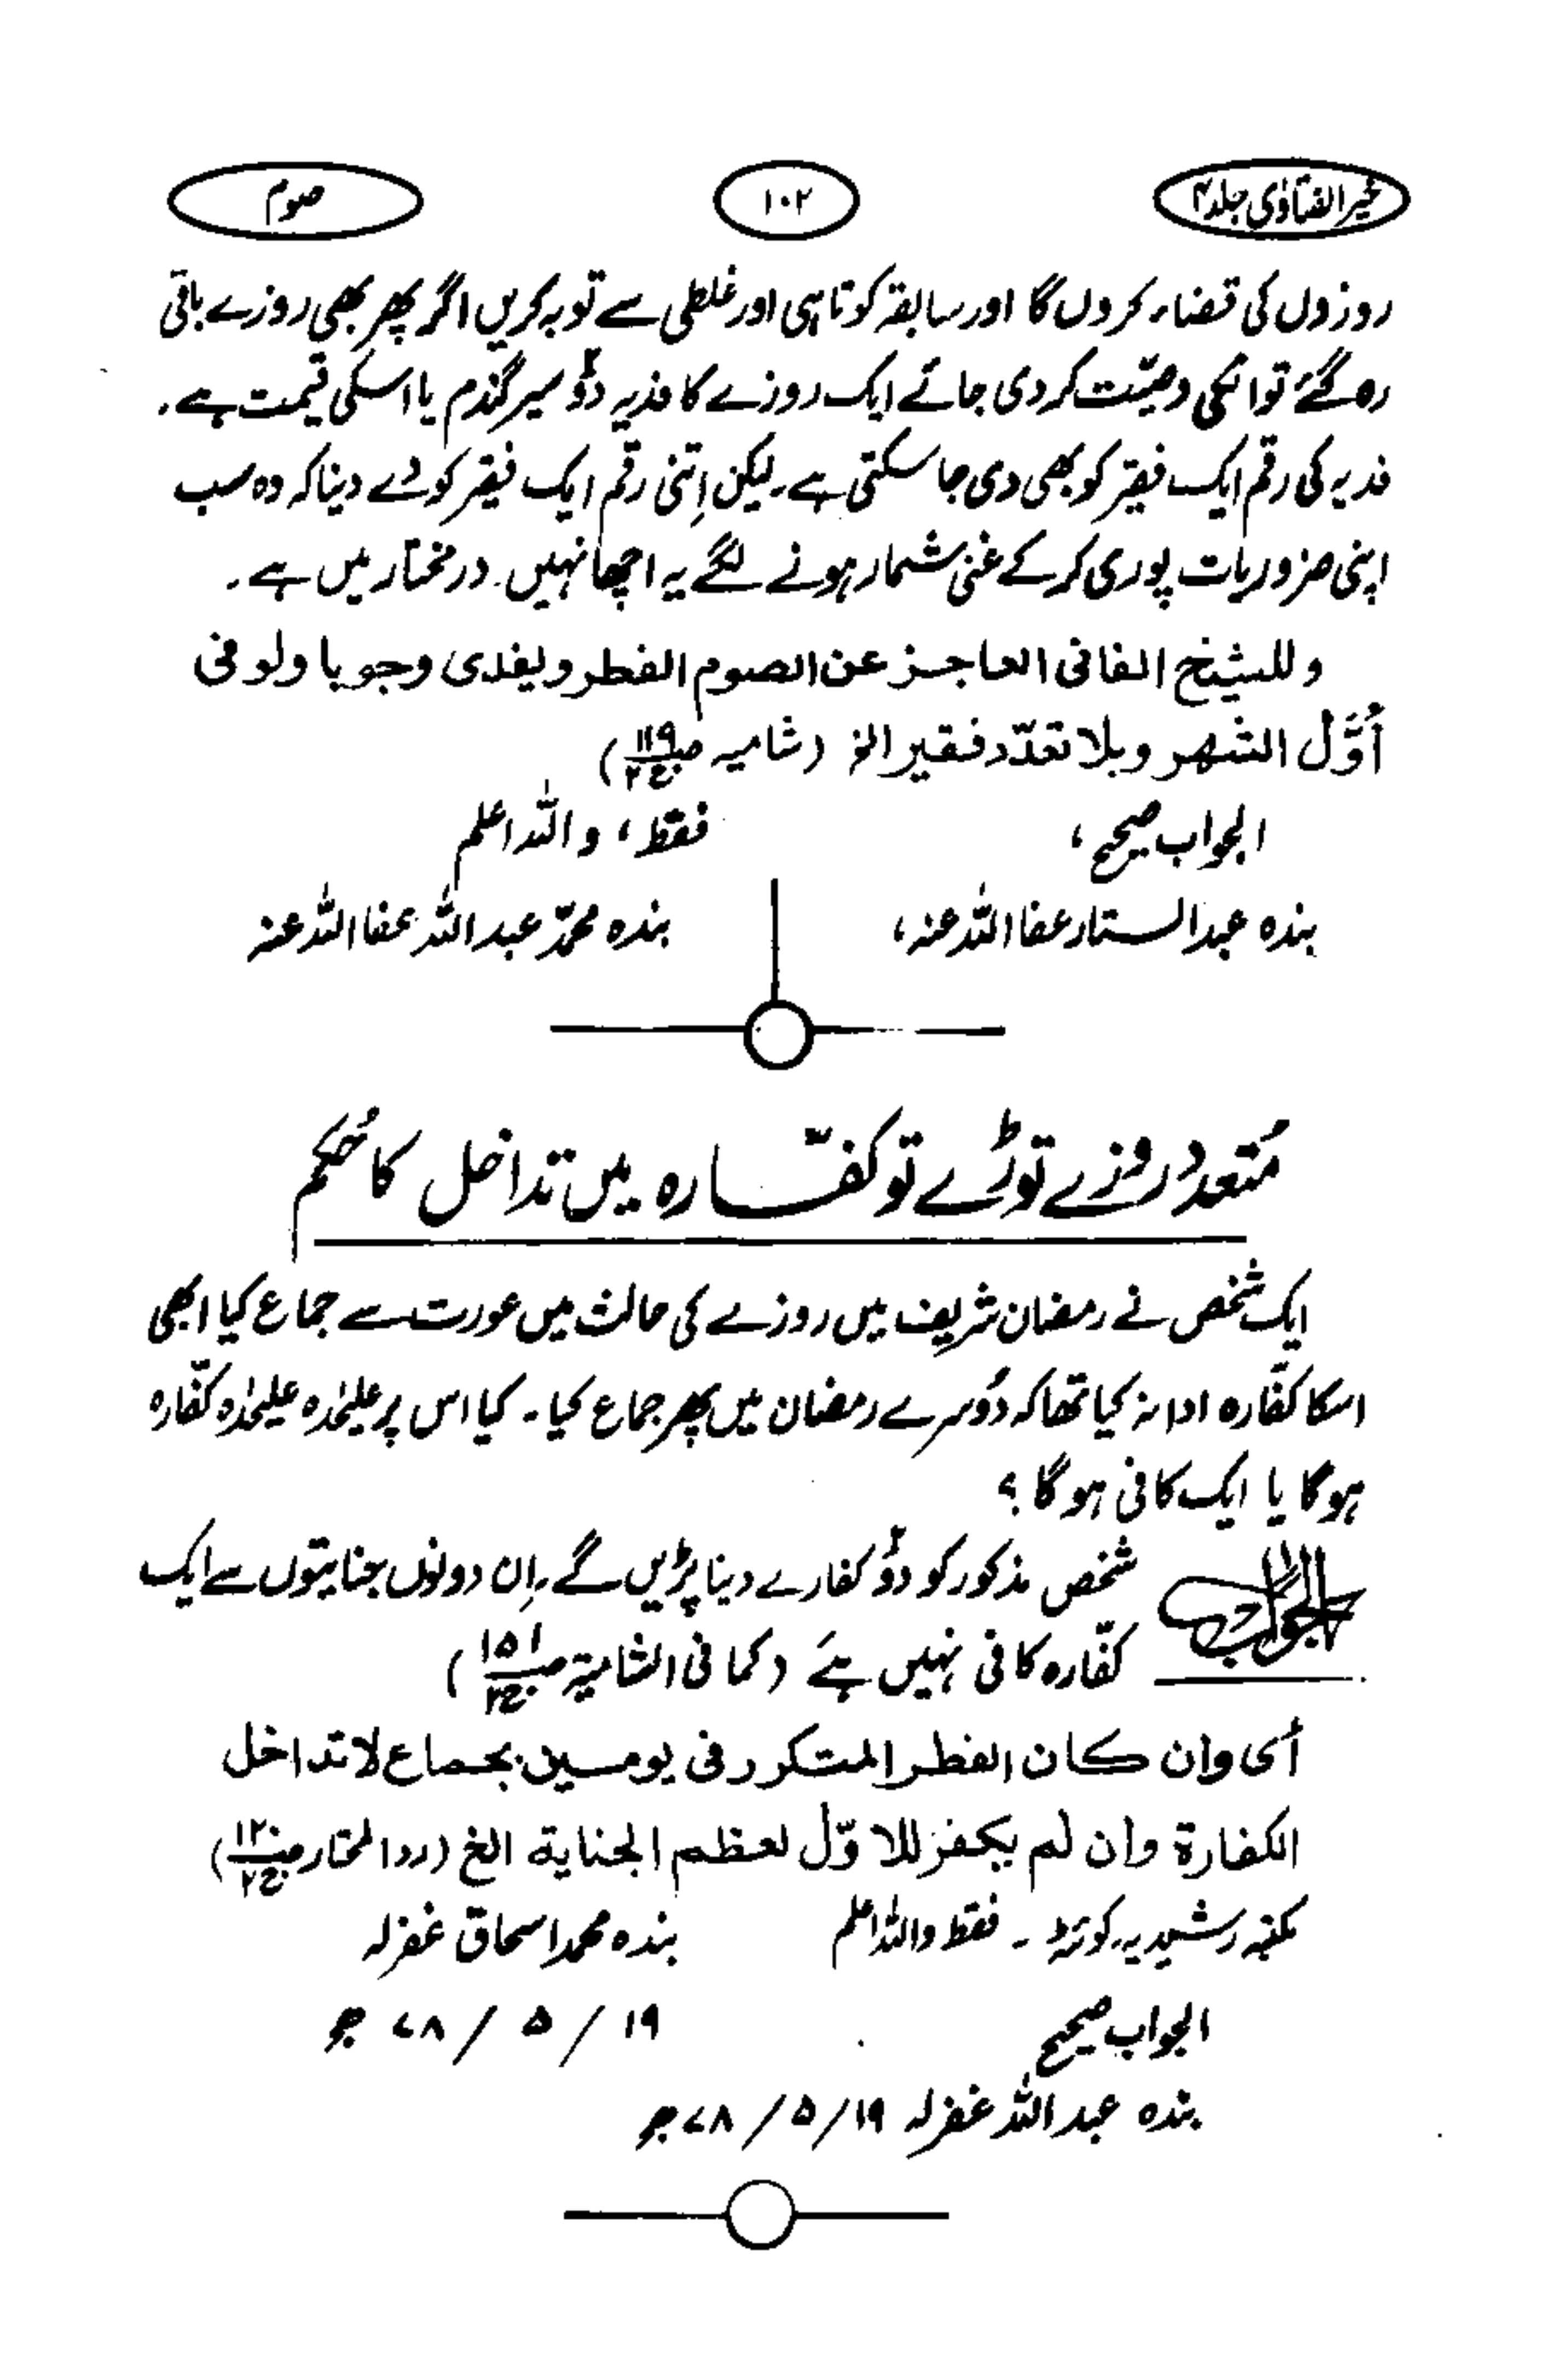 خیر الفتاوٰی جلد ۴
۱۰۲
صوم
روزوں کی قضاء کردوں گا اور سابقہ کوتاہی اور غلطی سے توبہ کریں اگر پھر بھی روزے باقی
رہ گئے تو انکی وصیّت کردی جائے ایک روزے کا فدیہ دوؔ سیر گندم یا اسکی قیمت ہے۔
فدیہ کی رقم ایک فقیر کو بھی دی جاسکتی ہے۔ لیکن اِتنی رقم ایک فقیر کو دے دینا کہ وہ سب
اپنی ضروریات پوری کرکے غنی شمار ہونے لگے یہ اچھا نہیں۔ درمختار میں ہے۔
وللشیخ الفانی العاجز عن الصوم الفطر ویفدی وجوبا ولو فی
أوَّل الشهر وبلا تعدّد فقیر الخ (شامیہ ص۱۱۹ ج۲)
الجواب صحیح، فقط، واللہ اعلم
بندہ عبدالستار عفا اللہ عنہ، بندہ محمّد عبداللہ عفا اللہ عنہ
مُتعدد روزے توڑے تو کفّارہ میں تداخل کا حُکم
ایک شخص نے رمضان شریف میں روزے کی حالت میں عورت سے جماع کیا ابھی
اسکا کفّارہ ادا نہ کیا تھا کہ دُوسرے رمضان میں پھر جماع کیا۔ کیا اس پر علیحٰدہ علیحٰدہ کفّارہ
ہوگا یا ایک کافی ہوگا؟
الجواب شخص مذکور کو دوؔ کفارے دینا پڑیں گے۔ اِن دونوں جنایتوں سے ایک
کفّارہ کافی نہیں ہے (کما فی الشامیة ص۱۵۱ ج۲)
أی وان کان الفطر المتکرر فی یومین بجماع لا تداخل
الکفارة وان لم یکفر للاوّل لعظم الجنایة الخ (ردالمختار ص۱۲۰ ج۲)
مکتبہ رشیدیہ، کوئٹہ ۔ فقط واللہ اعلم بندہ محمد اسحاق غفرلہ
الجواب صحیح ۱۹ / ۵ / ۷۸ ھ
بندہ عبداللہ غفرلہ ۱۹/ ۵ / ۷۸ھ